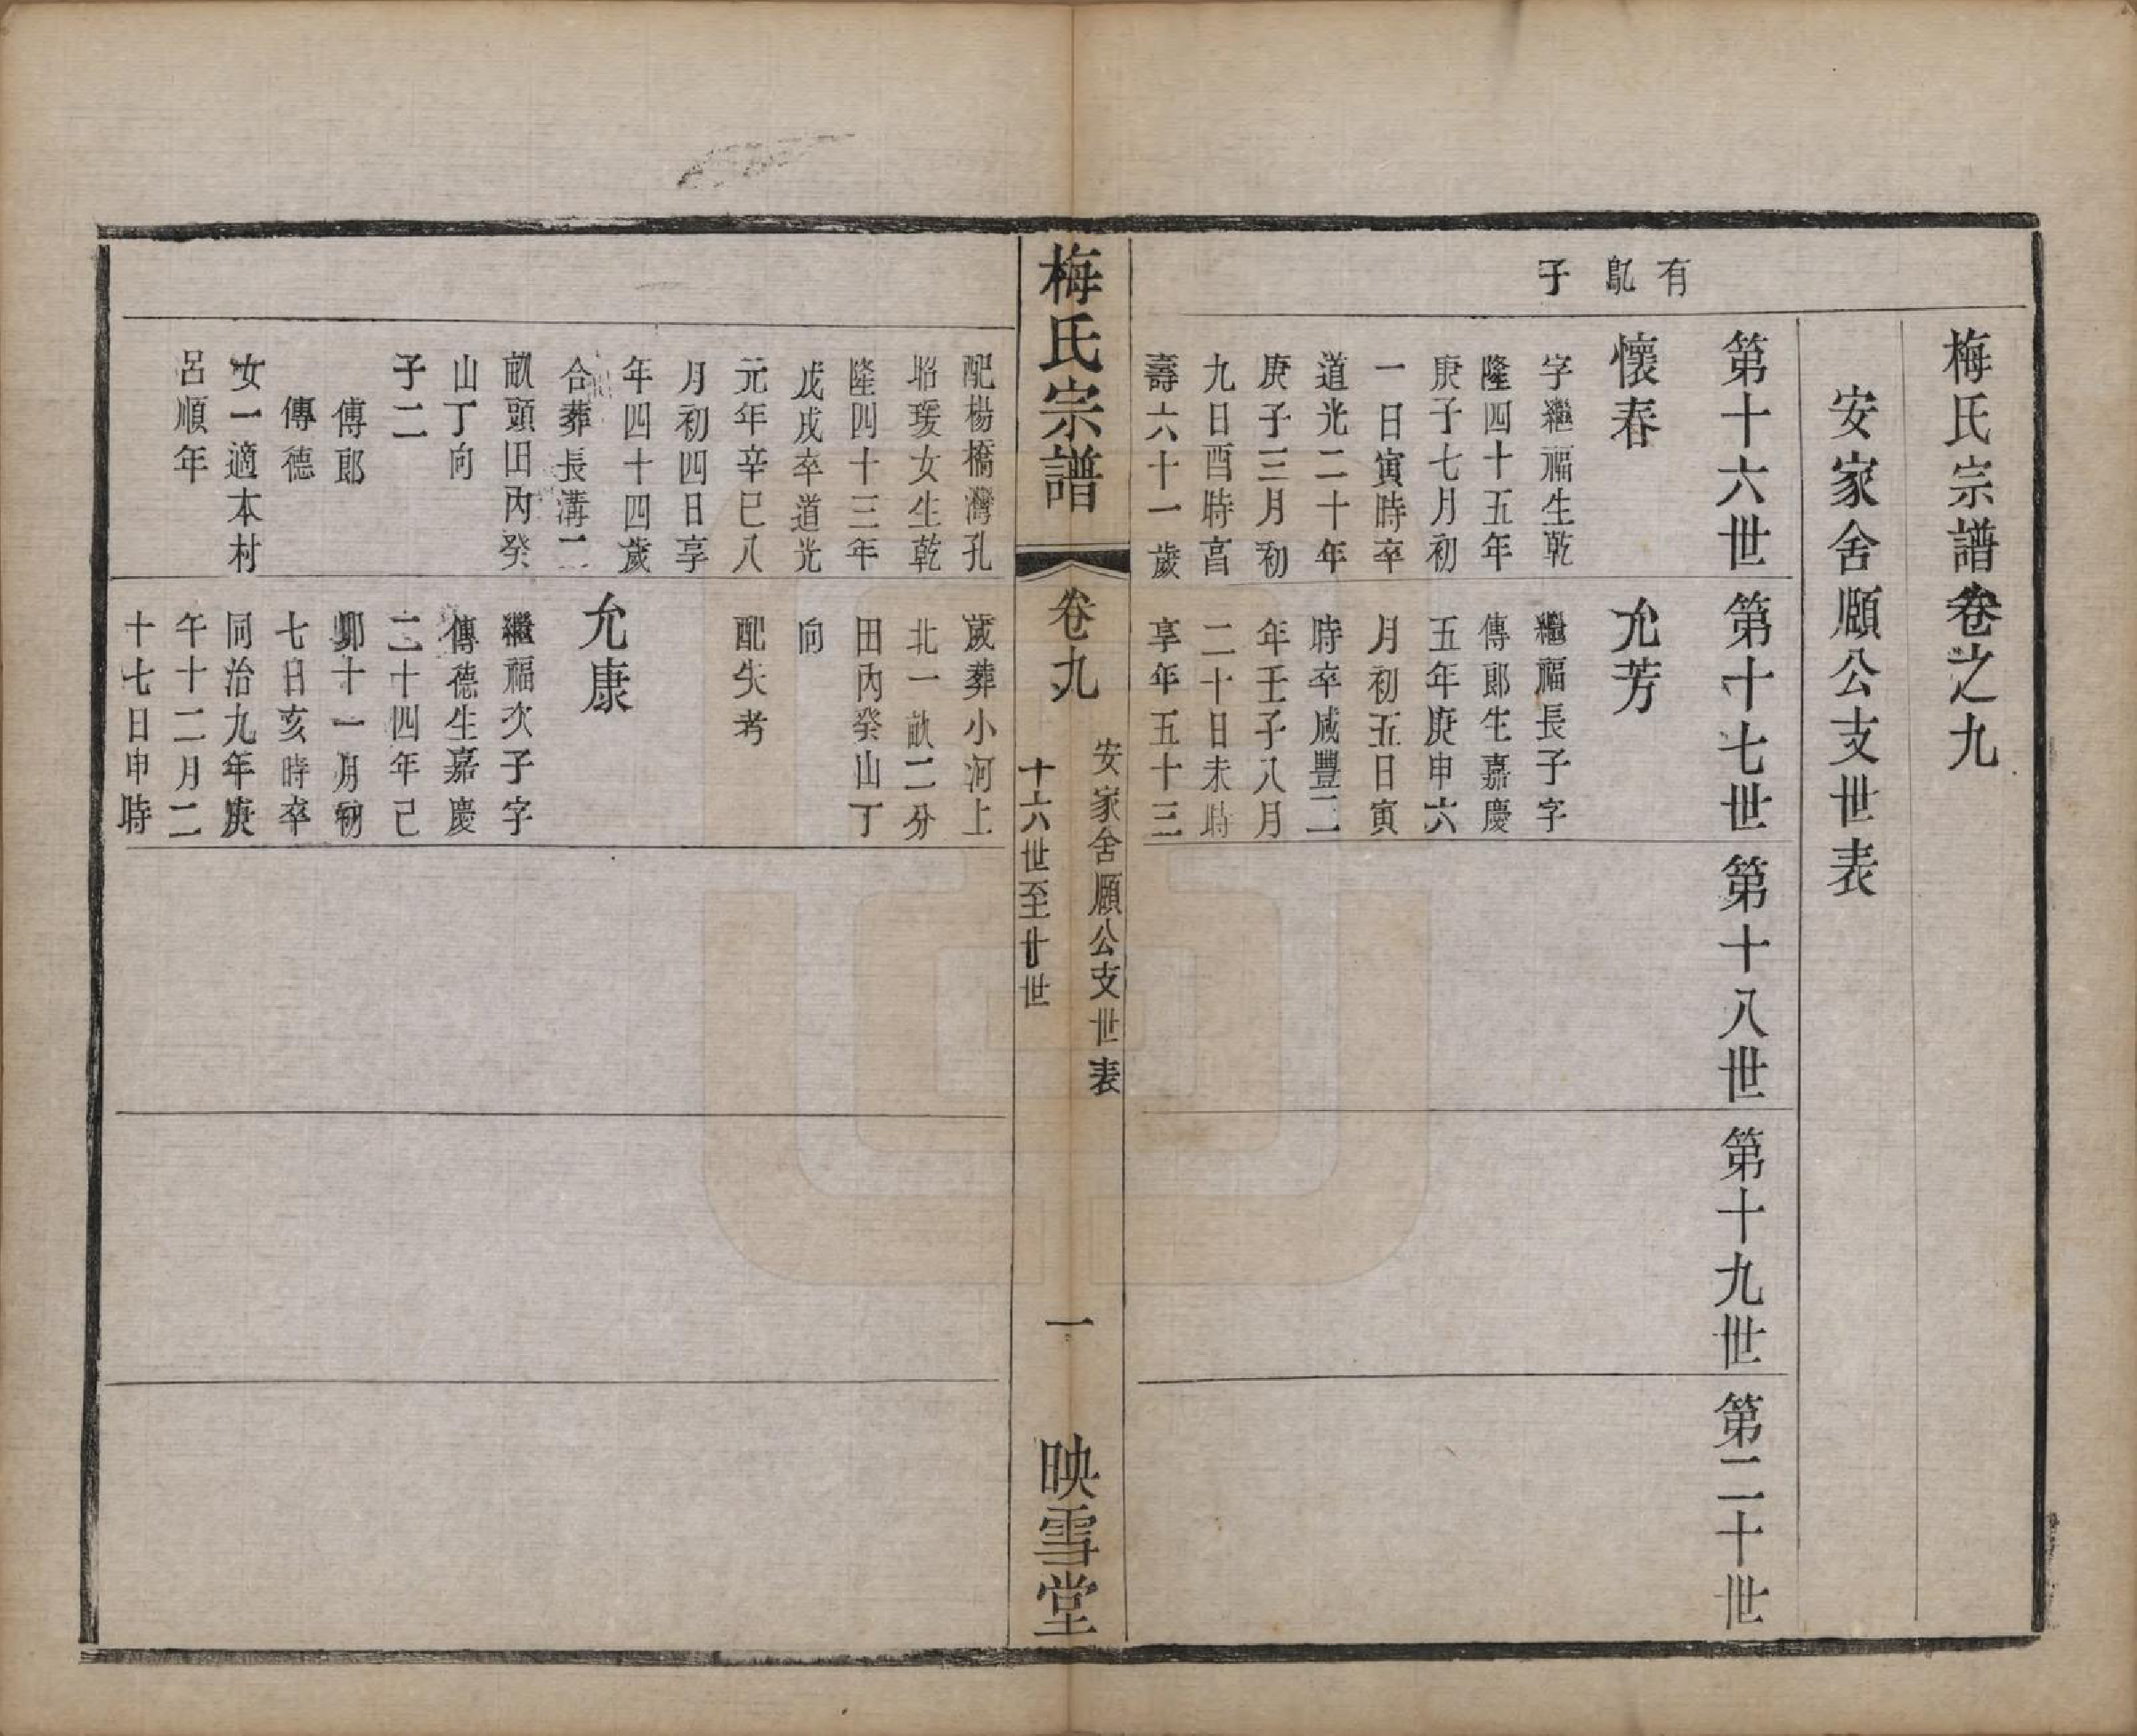 梅氏宗譜卷之九
安家舍願公支世表
第十六世
第十七世
第十八世
第十九世
第二十世
有
子
懷春
字繼福生乾
隆四十五年
庚子七月初
一日寅時卒
道光二十年
庚子三月初
九日酉時亯
壽六十一歲
允芳
繼福長子字
傳郎生嘉慶
五年庚申六
月初五日寅
時卒咸豐二
年壬子八月
二十日未時
享年五十三
梅氏宗譜
卷九
安家舍願公支世表
十六世至廿世
一
映雪堂
配楊橋灣孔
昭瑗女生乾
隆四十三年
戊戌卒道光
元年辛巳八
月初四日享
年四十四歲
合葬長溝二
畝頭田內癸
山丁向
子二
傳郎
傳德
女一適本村
呂順年
歲葬小河上
北一畝二分
田內癸山丁
向
配失考
允康
繼福次子字
傳德生嘉慶
二十四年己
卯十一月初
七日亥時卒
同治九年庚
午十二月二
十七日申時